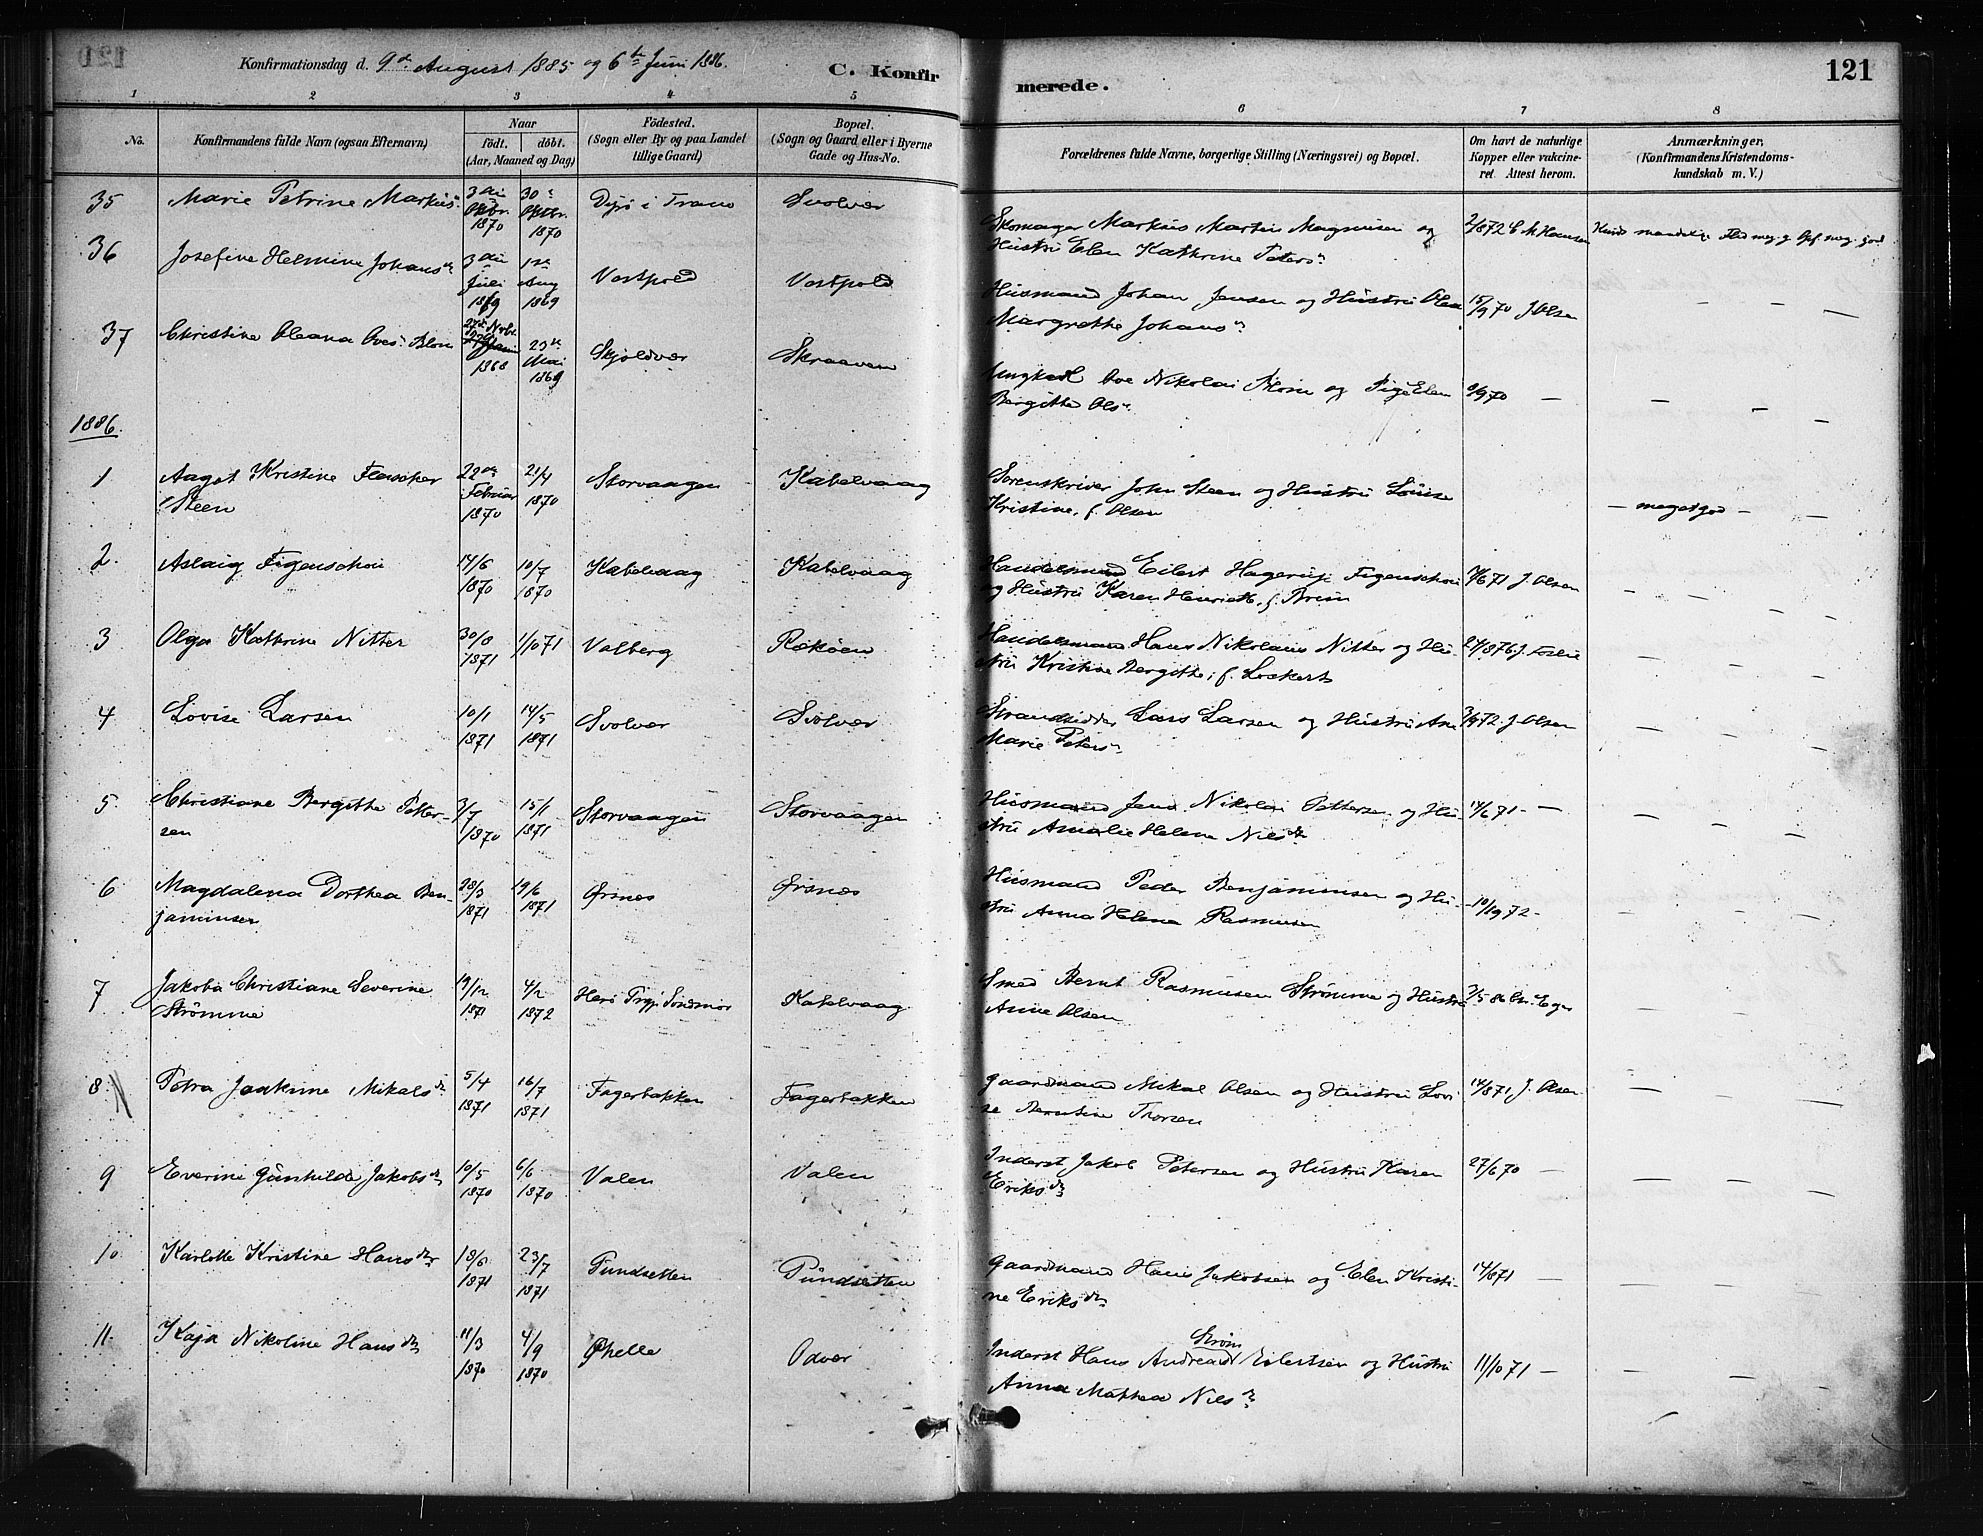 Konfirmationsdag d. 9de August 1885 og 6te Juni 1886.
C. Konfirmerede.
121
1 2 3 4 5 6 7 8
No.
Konfirmandens fulde Navn (ogsaa Efternavn)
Naar
födt. döbt.
(Aar, Maaned og Dag)
Födested.
(Sogn eller By og paa Landet
tillige Gaard)
Bopæl.
(Sogn og Gaard eller i Byerne
Gade og Hus-No.
Forældrenes fulde Navne, borgerlige Stilling (Næringsvei) og Bopæl.
Om havt de naturlige
Kopper eller vakcine-
ret. Attest herom.
Anmærkninger,
(Konfirmandens Kristendoms-
kundskab m. V.)
35 Marie Petrine Markus 3die Oktbr. 1870 30te Oktbr. 1870 Dyrö i Tranö Svolvær
Skomager Markus Martin Magnusen og
Hustru Elen Kathrine Peters
2/872 C M Hansen
36 Josefine Helmine Johans 3die Juli 1869 1ste Aug 1869 Vestpold Vestpold
Husmand Johan Jensen og Hustru Olea
Margrethe Johans
15/9 70 J Olsen
37 Christine Oleana Oves Blom 27de Novbr. 1868 23de Mai 1869 Skjoldvær Skraaven
Ungkarl Ove Nikolai Blom og Pige Elen
Bergitte Ols
1886.
1 Aagot Kristine Fleischer
Steen
22de Februar 1870 21/4 1870 Storvaagen Kabelvaag
Sorenskriver John Steen og Hustru Louise
Kristine, f. Olsen
— meget god —
2. Aslaug Figenschou 14/6 1870 10/7 1870 Kabelvaag Kabelvaag
Handelsmand Eilert Hagerup Figenschou
og Hustru Karen Henriette, f. Brun
7/6 71 J. Olsen
3 Olga Kathrine Nitter 30/8 1871 1/10 71 Valberg Rekøen
Handelsmand Hans Nikolaus Nitter og Hu-
stru Kristine Bergitte, f. Lockert
4 Lovise Larsen 10/1 1871 14/5 1871 Svolvær Svolvær
Strandsidder Lars Larsen og Hustru Ane
Marie Peters
3/9 72. J. Olsen
5 Christiane Bergitte Petter-
sen
3/7 1870 15/1 1871 Storvaagen Storvaagen
Husmand Jens Nikolai Pettersen og Hu-
stru Amalie Helene Nilsdr
14/6 71 —
6 Magdalena Dorthea Ben-
jaminsen
28/3 1871 19/6 1871 Ørsnes Ørsnes
Husmand Peder Benjaminsen og Hu-
stru Anna Helena Rasmusen
7 Jakoba Christiane Severine
Strømme
19/12 1871 4/2 1872 Herö Prgj. Söndmör Kabelvaag
Smed Bernt Rasmusen Strømme og Hustru
Anne Olsen
8 Petra Joakime Mikalsdr 5/4 1871 16/7 1871 Fagerbakken Fagerbakken
Gaardmand Mikal Olsen og Hustru Lovi-
se Berntine Thorsen
14/8 71, J. Olsen
9 Everine Gunhilde Jakobsdr 10/5 1870 6/6 1870 Valen Valen
Inderst Jakob Petersen og Hustru Karen
Eriksdr
27/6 70 —
10 Karlotte Kristine Hansdr 18/6 1871 23/7 1871 Pundsetten Pundsetten
Gaardmand Hans Jakobsen og Elen Kristi-
ne Eriksdr
14/8 71 —
11. Kaja Nikoline Hansdr 11/3 1870 4/9 1870 Ødvær
Strøm
Inderst Hans Andreas Eilertsen og Hustru
Anna Mathea Nils
11/10 71 —